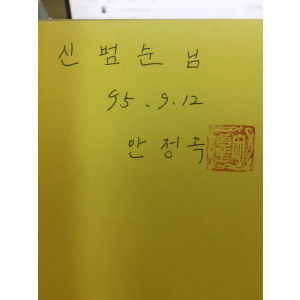 신 범 순 님
95. 9. 12
안 정 옥